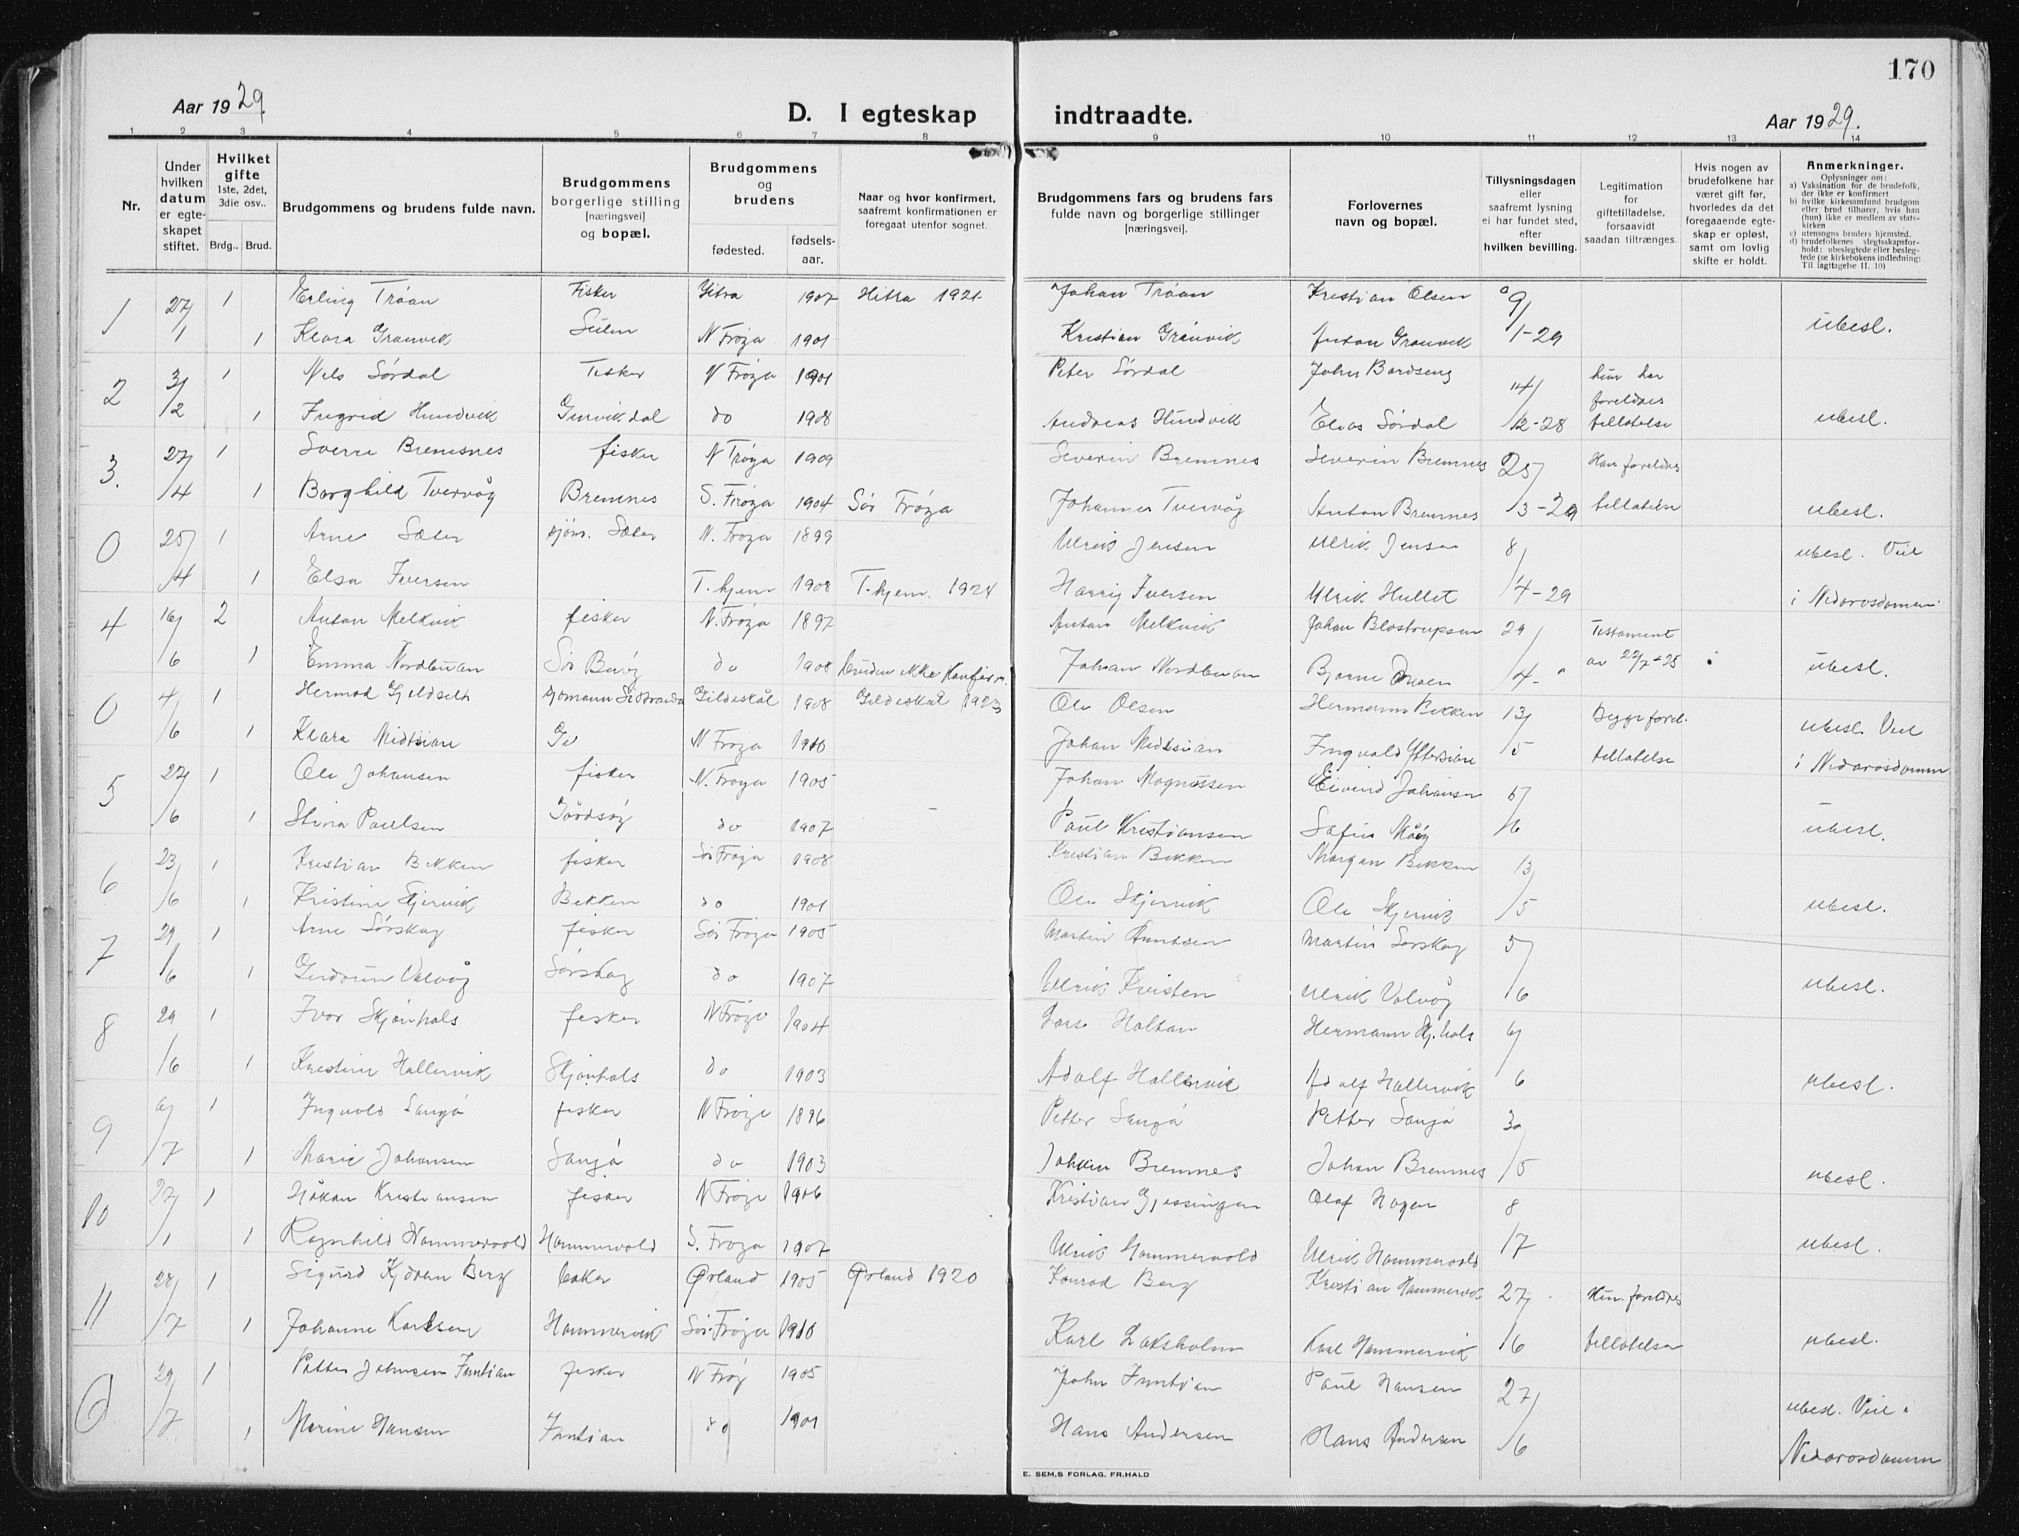 170
Aar 1929 D. I egteskap indtraadte. Aar 1929.
1 2 3 4 5 6 7 8 9 10 11 12 13 14
Nr.
Under hvilken datum er egte-skapet stiftet.
Hvilket gifte 1ste, 2det, 3die osv..
Brdg.. Brud.
Brudgommens og brudens fulde navn.
Brudgommens borgerlige stilling [næringsvei] og bopæl.
Brudgommens og brudens
fødested. fødsels-aar.
Naar og hvor konfirmert, saafremt konfirmationen er foregaat utenfor sognet.
Brudgommens fars og brudens fars fulde navn og borgerlige stillinger [næringsvei].
Forlovernes navn og bopæl.
Tillysningsdagen eller saafremt lysning ei har fundet sted, efter hvilken bevilling.
Legitimation for giftetilladelse, forsaavidt saadan tiltrænges.
Hvis nogen av brudefolkene har været gift før, hvorledes da det foregaaende egte-skap er opløst, samt om lovlig skifte er holdt.
Anmerkninger.
Oplysninger om:
a) Vaksination for de brudefolk, der ikke er konfirmert
b) hvilke kirkesamfund brudgom eller brud tilhører, hvis han (hun) ikke er medlem av stats-kirken
c) utensogns bruders hjemsted.
d) brudefolkenes slegtsskapsfor-hold: ubeslegtede eller besleg-tede (se kirkebokens indledning: Til iagttagelse II. 10)
1 27/1 1 Erling Trøan Fisker Hitra 1907 Hitra 1921 Johan Trøan Kristian Olsen 9/
1 Klara Grønvik Sulen N Frøya 1901 Kristian Grønvik Anton Grønvik 1-29 ubesl.
2 3/2 1 Nils Sørdal Fisker N Frøya 1901 Peter Sørdal John Bordseng 14/ hun har foreldres
1 Ingrid Hundvik Gurvikdal do 1908 Andreas Hundvik Elias Sørdal 12-28 tillatelse ubesl.
3. 27/4 1 Sverre Bremnes fisker N Frøya 1909 Severin Bremnes Severin Bremnes 25/ Han foreldres
1 Borghild Tvervåg Bremnes S. Frøya 1904 Sør Frøya Johannes Tvervåg Anton Bremnes 3-29 tillatelse ubesl.
0 25/4 1 Arne Sæter sjøm. Sæter N. Frøya 1899 Ulrik Jensen Ulrik Jensen 8/ ubesl. Viel
1 Elsa Iversen T.hjem 1908 T.hjem. 1924 Harry Iversen Ulrik Hullet 4-29 i Nidarosdomen
4 16/6 2 Anton Melkvik fisker N. Frøya 1897 Anton Melkvik Johan Blostrupsen 29/ Testament
1 Emma Nordbuan Sør Burøy do 1908 bruden ikke konfirm. Johan Nordbuan Bjarne 4- av 22/7-25 ubesl.
0 4/6 1 Hermod Gjeldseth Gildeskål 1908 Gildeskål 1923 Ole Olsen Hermann Bekken 13/ Begge forel.
1 Klara Midtsian N Frøya 1910 Johan Midtsian Ingvald Yttersian 5 tillatelse ubesl. Viel i Nidarosdomen
5 27/6 1 Ole Johansen fisker N. Frøya 1905 Johan Magnussen Eivind Johansen 5/
1 Stina Paulsen do 1907 Paul Kristiansen 6 ubesl.
6 23/6 1 Kristian Bekken fisker Sør Frøya 1908 Kristian Bekken Morgan Bekken 13
1 Kristine Skjervik Bekken do 1901 Ole Skjervik Ole Skjervik 5 ubesl.
7 29/6 1 Arne Sørskag fisker Sør Frøya 1905 Martin Knutsen Martin Sørskag 5/
1 Gudrun Valvåg Sørskag do 1907 Ulrik Kristen Ulrik Valvåg 6 ubesl.
8 29/6 1 Ivar Skjønhals fisker N Frøya 1904 Lars Holtan Hermann Skj.hals 6/
1 Kristine Hallervik Skjønhals do 1903 Adolf Hallervik Adolf Hallervik 6 ubesl.
9 6/7 1 Ingvald Sangø fisker N Frøya 1896 Petter Sangø Petter Sangø 30/
1 Marie Johansen Sangø do 1903 Johan Bremnes Johan Bremnes 5 ubesl.
10 27/1 1 Håkan Kristiansen fisker N Frøya 1906 Kristian Gjessingen Olaf Hagen 8
1 Ragnhild Hammervold Hammervold S. Frøya 1907 Ulrik Hammervold Ulrik Hammervold 17 ubesl.
11 28/7 1 Sigurd Kjdren Berg baker Ørland 1905 Ørland 1920 Konrad Berg Kristian Hammervik 27/ Hun foreldres
1 Johanne Karlsen Hammervik Sør-Frøya 1910 Karl Laksholm Karl Hammervik 6 tillatelse ubesl.
0 29/7 1 Petter Johnsen Inntian fisker N Frøy 1905 John Inntian Paul Hansen 27/ ubesl. Viel i
1 Marine Hansen Inntian do 1901 Hans Andersen Hans Andersen 6 Nidarosdomen
E. SEM,S FORLAG, FR.HALD